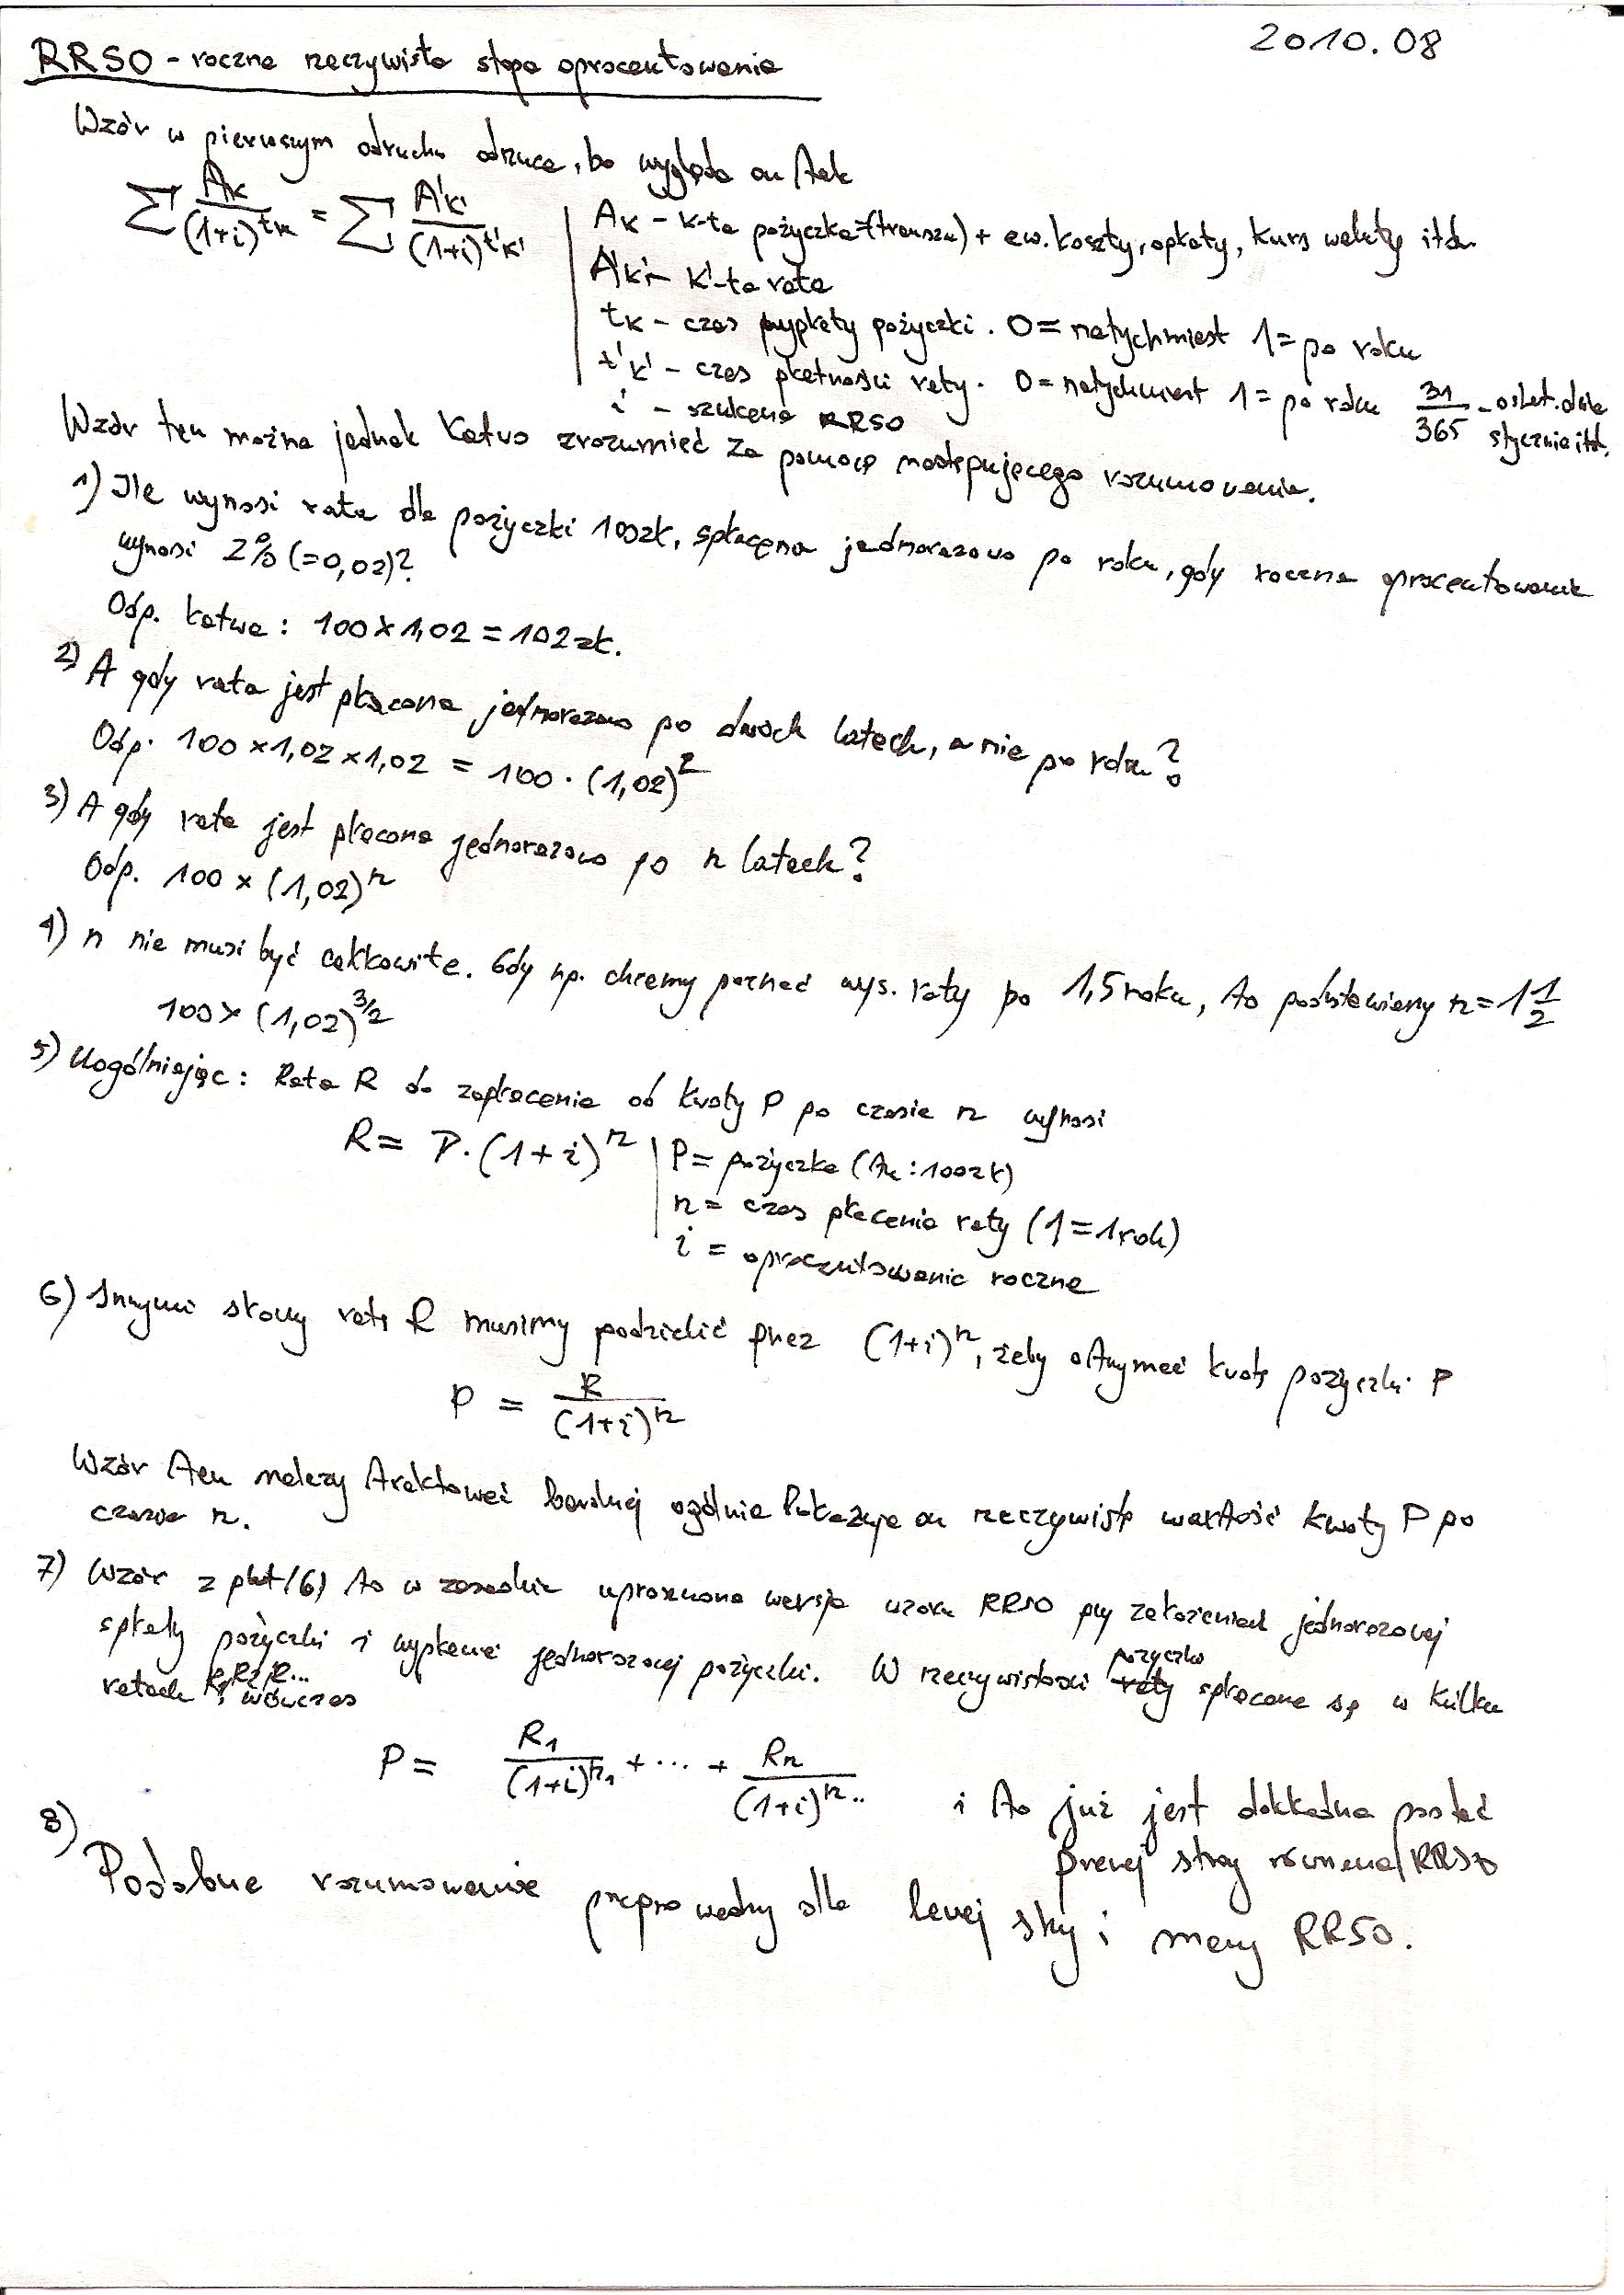 2010.08
RRSO - roczna rzeczywista stopa oprocentowania
Wzór w pierwszym odruchu odrzuca, bo wygląda on tak
∑ Ak/(1+i)^tk = ∑ A'k'/(1+i)^t'k'
Ak - k-ta pożyczka (transza) + ew. koszty, opłaty, kurs waluty itd.
A'k' - k'-ta rata
tk - czas wypłaty pożyczki. 0 = natychmiast 1 = po roku
t'k' - czas płatności raty. 0 = natychmiast 1 = po roku 31/365 - ostat. dnia stycznia itd.
i - szukana RRSO
Wzór ten można jednak łatwo zrozumieć za pomocą następującego rozumowania.
1) Ile wynosi rata dla pożyczki 100zł, spłacana jednorazowo po roku, gdy roczne oprocentowanie
wynosi 2% (=0,02)?
Odp. łatwa: 100×1,02 = 102zł.
2) A gdy rata jest płacona jednorazowo po dwóch latach, a nie po roku?
Odp. 100×1,02×1,02 = 100·(1,02)^2
3) A gdy rata jest płacona jednorazowo po n latach?
Odp. 100×(1,02)^n
4) n nie musi być całkowite. Gdy np. chcemy poznać wys. raty po 1,5 roku, to podstawiamy n = 1 1/2
100×(1,02)^3/2
5) Uogólniając: Rata R do zapłacenia od kwoty P po czasie n wynosi
R = P·(1+i)^n
P = pożyczka (tu: 100zł)
n = czas płacenia raty (1 = 1 rok)
i = oprocentowanie roczne
6) Innymi słowy ratę R musimy podzielić przez (1+i)^n, żeby otrzymać kwotę pożyczki P
P = R/(1+i)^n
Wzór ten należy traktować bardziej ogólnie Pokazuje on rzeczywistą wartość kwoty P po
czasie n.
7) Wzór z pkt (6) to w zasadzie uproszczona wersja wzoru RRSO przy założeniach jednorazowej
spłaty pożyczki i wypłaceniu jednorazowej pożyczki. W rzeczywistości pożyczka spłacane są w kilku
ratach R1, R2, R... i wówczas
P = R1/(1+i)^n1 + ... + Rn/(1+i)^n..
i to już jest dokładna postać
prawej strony równania RRSO
8) Podobne rozumowanie przeprowadzamy dla lewej strony i mamy RRSO.